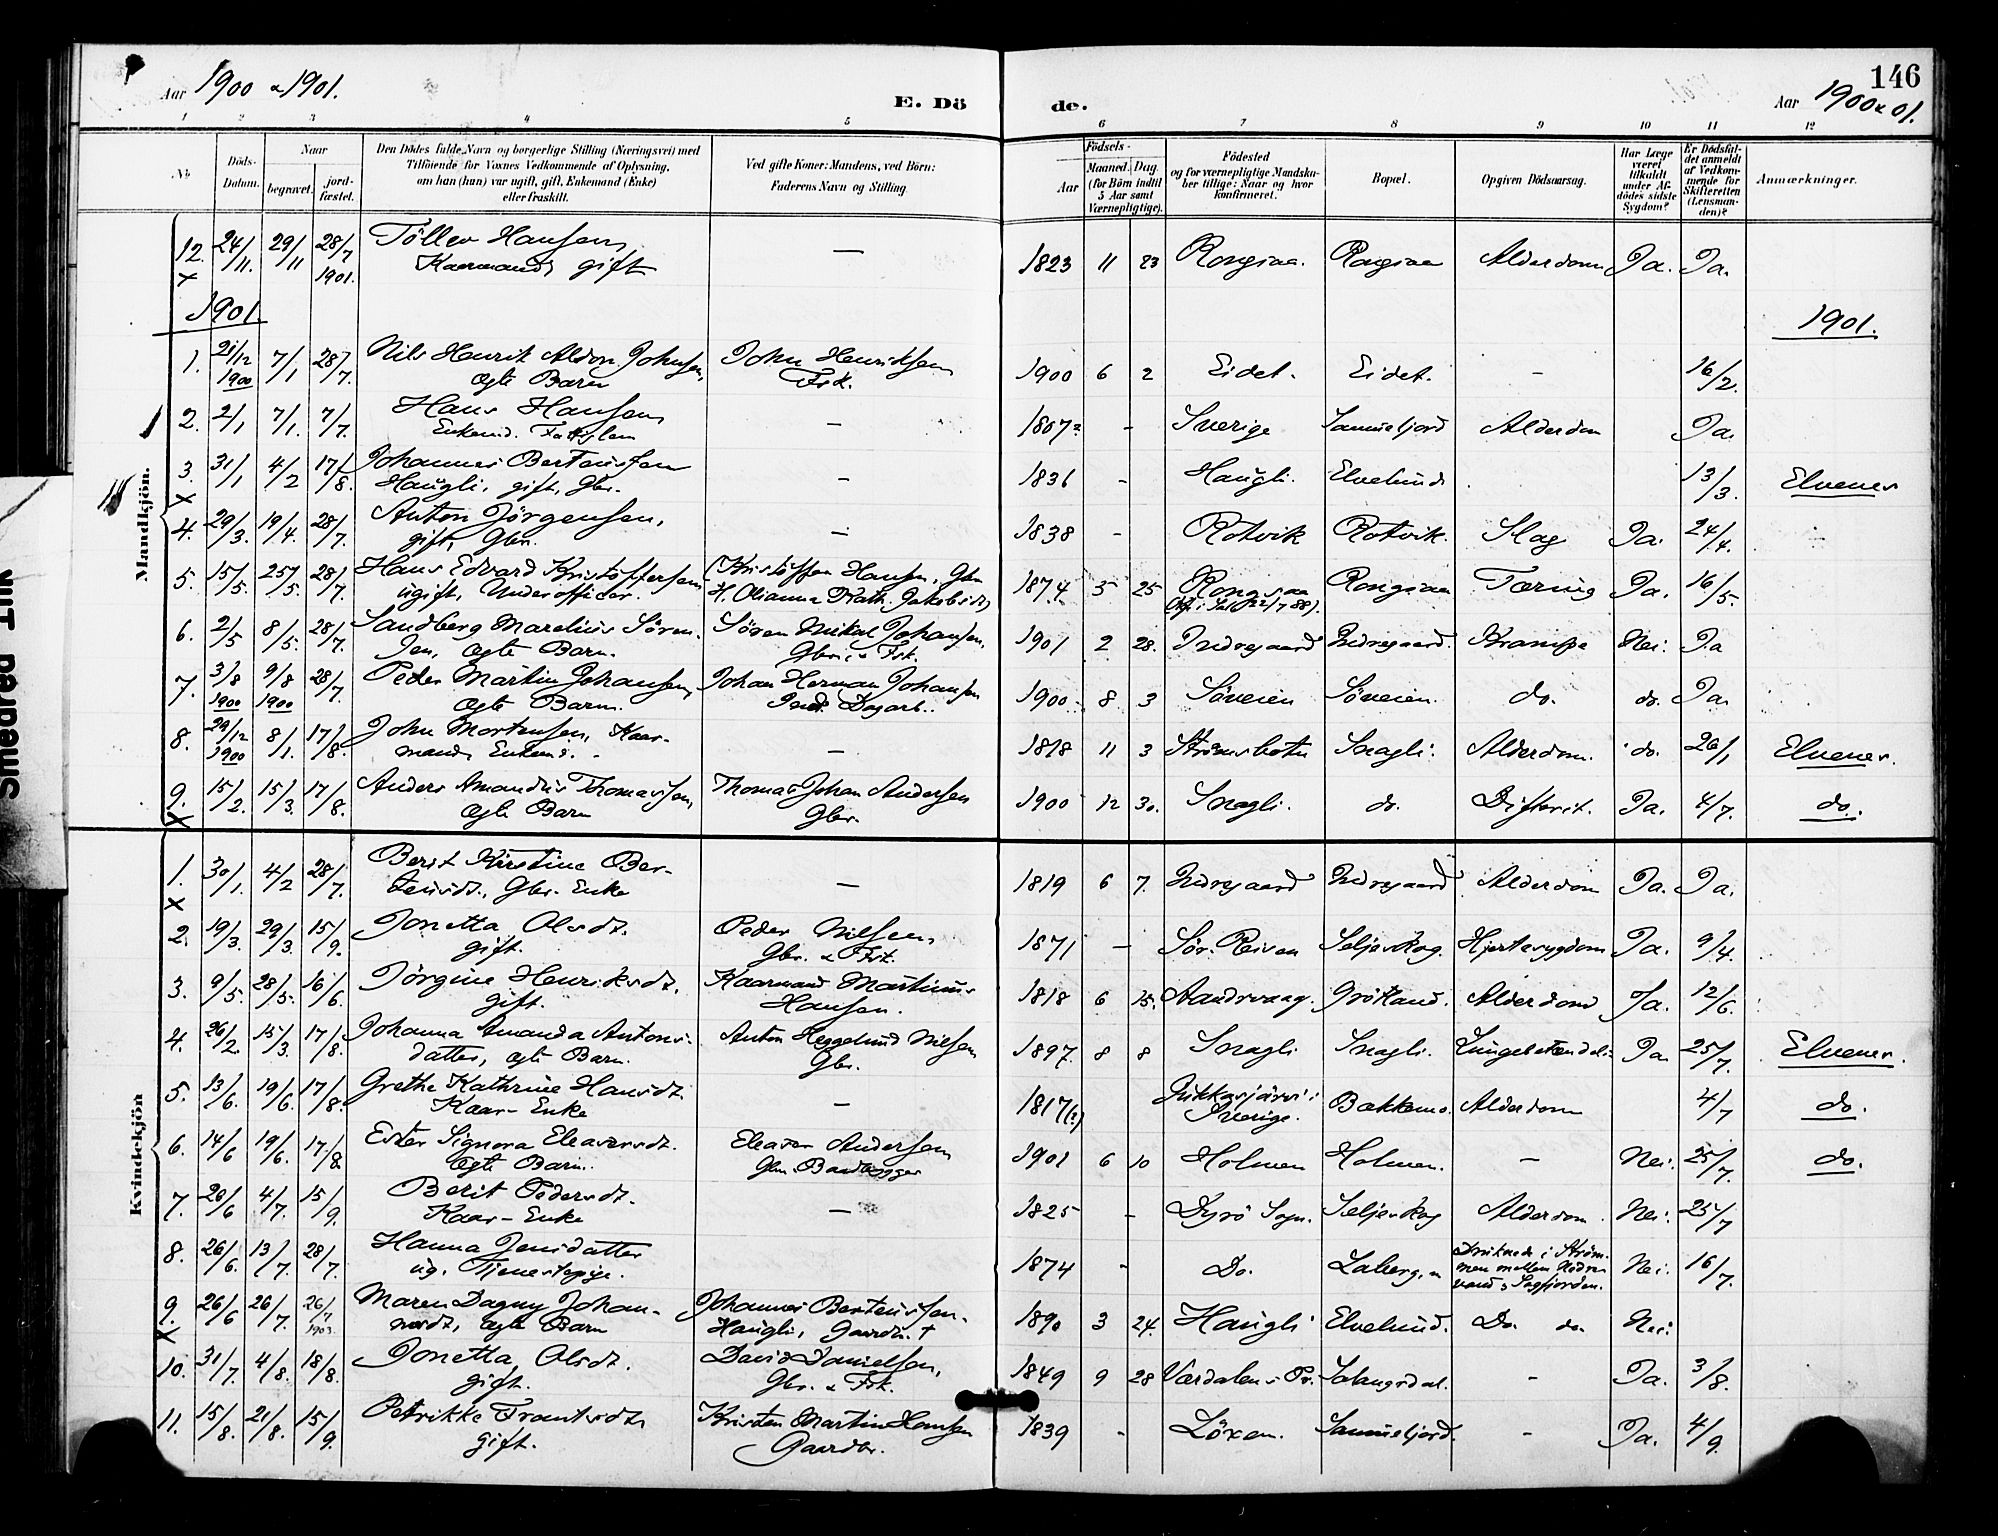 146
Aar 1900 & 1901.
E. Dö
de.
Aar 1900 & 01.
1 2 3 4 5 6 7 8 9 10 11 12
No
Döds-
Datum.
Naar
begravet.
jord-
fæstet.
Den Dödes fulde Navn og borgerlige Stilling (Næringsvei) med
Tilföiende for Voxnes Vedkommende af Oplysning,
om han (hun) var ugift, gift, Enkemand (Enke)
eller fraskilt.
Ved gifte Koner: Mandens, ved Börn:
Faderens Navn og Stilling.
Födsels-
Aar
Maaned.
Dag.
(for Börn indtil
5 Aar samt
Værnepligtige).
Födested
og for værnepligtige Mandska-
ber tillige: Naar og hvor
konfirmeret.
Bopæl.
Opgiven Dödsaarsag.
Har Læge
været
tilkaldt
under Af-
dödes sidste
Sygdom?
Er Dödsfal-
det anmeldt
af Vedkom-
mende for
Skifteretten
(Lensman-
den)?
Anmærkninger.
Mandkjön.
12. 24/11. 29/11 28/7 1901. Töllev Hansen, — 1823 11 23 Rongiaa. Rongiaa Alderdom Ja. Ja.
x Kaarmand, gift
1901. 1901.
1. 21/12 1900 7/1 28/7. Nils Henrik Aldon Johnsen, John Henriksen 1900 6 2 Eidet. Eidet. - 16/2.
ægte Barn Fsk.
2. 2/1 7/1. 7/7. Hans Hansen, - 1807? - Sverige Alderdom Ja.
Enkemd. Fattiglem
3 31/1 4/2 17/8. Johannes Berteussen - 1836 - Haugli. Elvelund. 13/3. Elvenes
x Haugli, gift, Gbr.
4. 29/3. 19/4. 28/7. Anton Jörgensen, - 1838 - Rotvik Rotvik. Slag Ja. 24/4.
gift, Gbr.
5. 15/5. 25/5. 28/7. Hans Edvard Kristoffersen (Kristoffer Hansen, Gbr 1874 5 25 Rongsaa Rongiaa Tæring Ja. 16/5.
ugift, Underofficer. H. Olianna Kath. Jakobsdt)
6. 2/5 8/5. 28/7. Sandberg Marelius Sören- Sören Mikal Johansen, 1901 2 28. Indregaard Indregaard. Krampe Nei. Ja
sen, ægte Barn. Gbr. & Fsk.
7. 3/8 1900 9/8 1900 28/7. Peder Martin Johansen, Johan Herman Johansen 1900 8 3 Söveien Söveien. do. do. Ja.
ægte Barn. Dagarb.
8. 29/12 1900 8/1. 17/8. John Mortensen, Kaar- - 1818 11 3 Strömsbotn Snagli. Alderdom. do. 26/1 Elvenes.
mand, Enkemd.
9. 15/2. 15/3. 17/8. Anders Amandus Thomassen, Thomas Johan Andersen 1900 12 30. Snagli. do. Difterit. Ja. 4/7. do.
x ægte Barn Gbr.
Kvindekjön
1. 30/1. 4/2 28/7. Berit Kirstine Ber- — 1819 6 7. Indregaard Indregaard Alderdom Ja. Ja.
x teusdt., Gbr. Enke
2. 19/3. 29/3. 15/9. Jonetta Olsdt. Peder Nilsen, 1871 - Sör-Reisen Seljeskog. Hjertesygdom Ja. 9/4.
gift. Gbr. & Fsk.
3. 9/5. 28/5. 16/6. Jörgine Henriksdt. Kaarmand Martinus 1818 6 15. Aandervaag. Grötland. Alderdom Ja. 12/6.
gift. Hansen.
4. 26/2. 15/3. 17/8. Johanna Amanda Antons- Anton Heggelund Nilsen 1897. 8 8 Snagli Snagli. Lungebetændelse Ja 25/7. Elvenes.
datter, ægte Barn. Gbr.
5. 13/6. 19/6. 17/8. Grethe Kathrine Hansdt. - 1817(?) Jukkasjärvi i Bakkemo. Alderdom 4/7 do.
Kaar-Enke Sverige.
6. 14/6 19/6. 17/8. Ester Signora Eleasersdt. Eleaser Andersen 1901 6 10 Holmen Holmen. - Nei. 25/7. do.
ægte Barn. Gbr. Baadbygger
7. 26/6 4/7. 15/9. Berit Pedersdt. - 1825 - Dyrö Sogn. Seljeskog Alderdom. Nei. 25/7
Kaar-Enke
8. 26/6. 13/7. 28/7. Hanna Jensdatter 1874 - Do. Laberg. Druknede i Ström- Nei. 16/7.
ug. Tjenestepige. men mellem Nedre-
vand & Sagfjorden.
9. 26/6 26/7. 26/7 1903. Maren Dagny Johan- Johannes Berteussen- 1890 3 24. Haugli Elvelund. Do. do. Nei.
x nesdt, ægte Barn Haugli, Gaardbr. †
10. 31/7. 4/8. 18/8. Jonetta Olsdt. David Danielsen, 1849 9 28 Værdalens Pr. Salangsdal. - Ja. 3/8.
gift. Gbr. & Fsk.
11. 15/8. 21/8. 15/9. Petrikke Frantsdt. Kristen Martin Hansen 1839 - Löxen. - Ja. 4/9.
gift. Gaardbr.